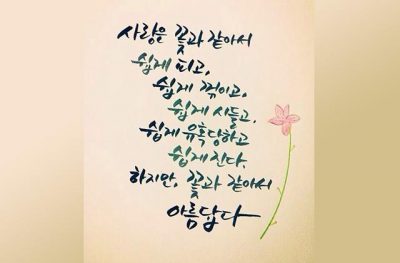 사랑은 꽃과 같아서
쉽게 피고,
쉽게 꺾이고,
쉽게 시들고,
쉽게 유혹당하고
쉽게 진다.
하지만, 꽃과 같아서
아름답다